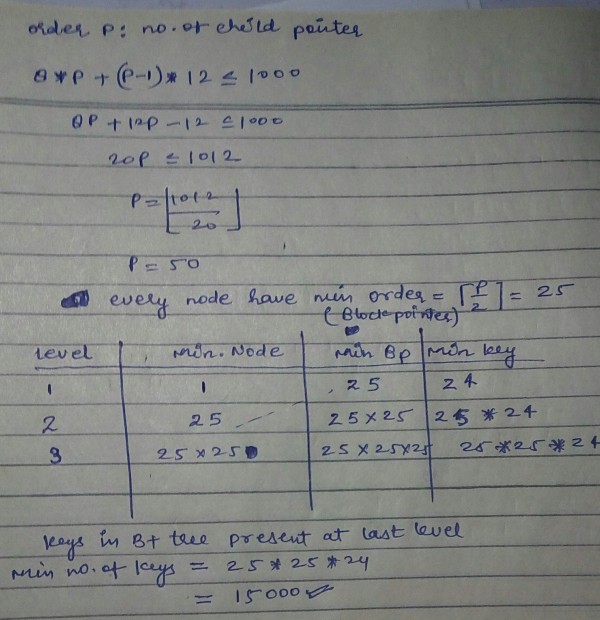 order P: no. of child pointer
8*P + (P-1)* 12 ≤ 1000
8P + 12P - 12 ≤ 1000
20P ≤ 1012
P = ⌊1012/20⌋
P = 50
every node have min order = ⌈P/2⌉ = 25
(Block pointer)
Level min. Node Min Bp Min key
1 1 25 24
2 25 25×25 25 * 24
3 25×25 25×25×25 25*25*24
keys in B+ tree present at last level
Min no. of keys = 25 * 25 * 24
= 15000 ✓